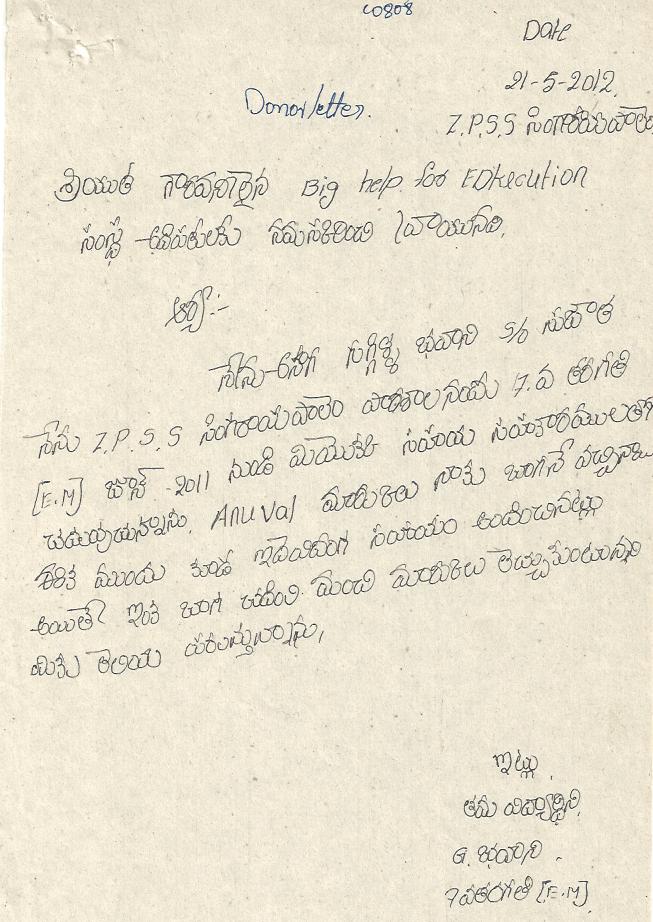 C0808
Date
21-5-2012.
Donor letter.
Z.P.S.S సింగరాయపాలెం
శ్రీయుత గౌరవనీలైన Big help for EDkecution
సంస్థ అదిపతులకు నమసకరించి వ్రాయునది.
ఆర్య:-
నేను అనగ గుగ్గిళ్ళ భవాని S/o సుజాత
నేను Z.P.S.S సింగరాయపాలెం పాఠశాల నందు 7.వ తరగతి
[E.M] జూన్ 2011 నుండి మియొకక సహయ సహకారములతో
చదువుచున్నాను. Anuval మారుకులు నాకు బాగానే వచ్చినాయి
ఇక ముందు కూడ ఇదెవిదంగ సహయం అందించినట్లు
అయితే ఇంక బాగ చదివి మంచి మారుకులు తెచ్చుకుంటునని
మికు తెలియ పరుస్తున్నాను,
ఇట్లు
తమ విద్యార్ధిని,
G. భవాని .
7వతరగతి [E.M]